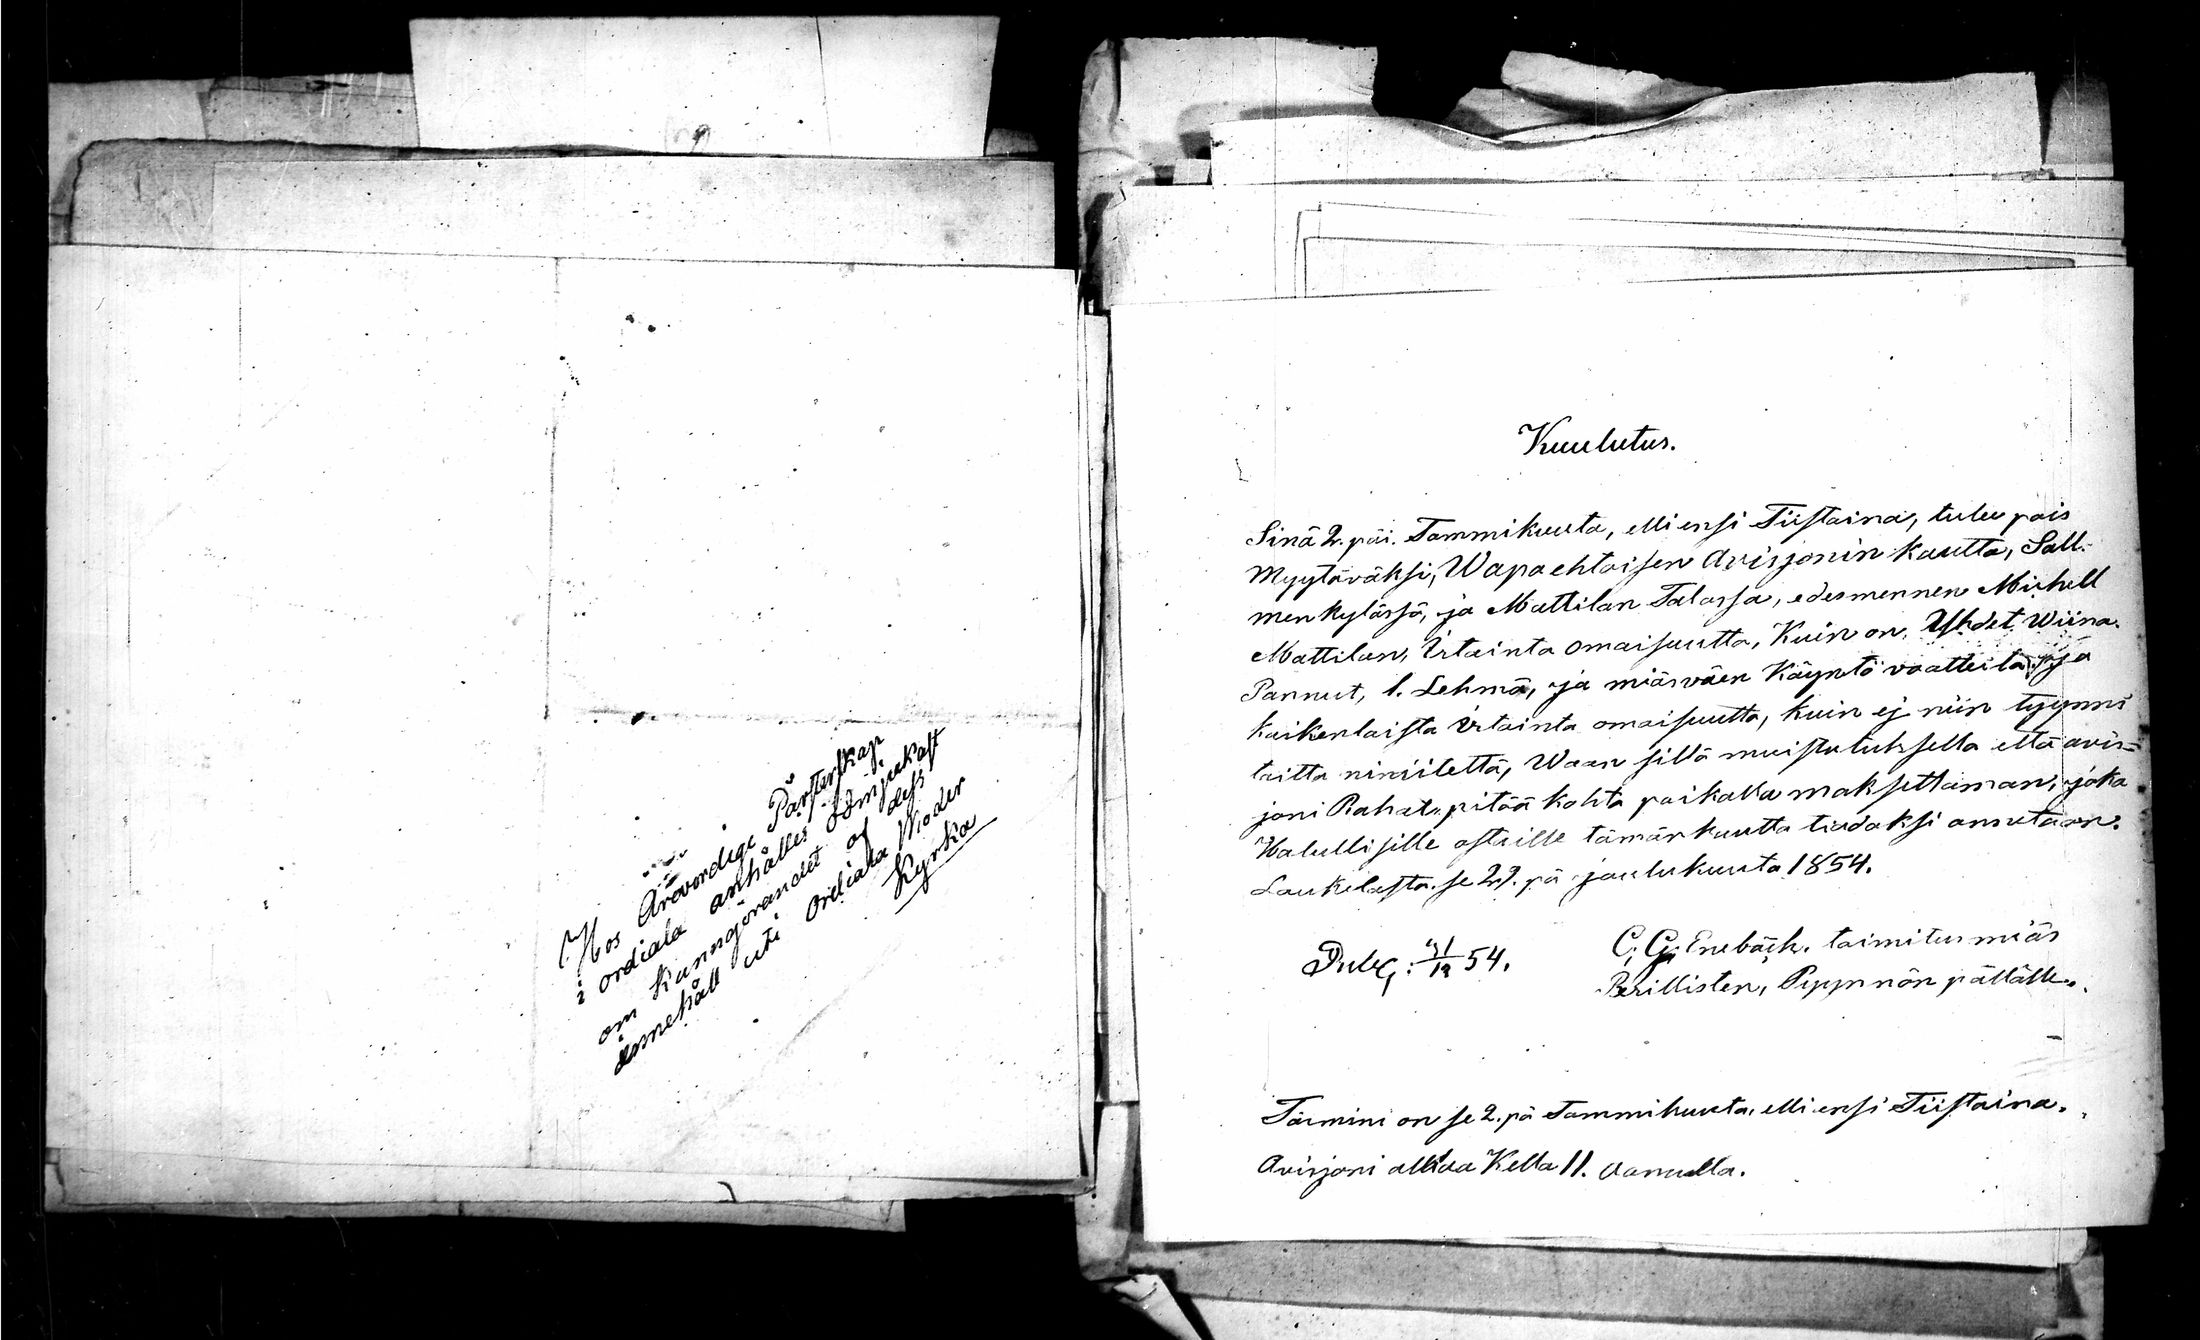 Hos Ärevördige Pårsterskap
i ordiala anhålles ödmjukast
om kunngörandet af dess
innehåll uti Ordiala Moder
Kyrka
Kuulutus.
Sinä 2. päi. Tammikuuta, elli ensi Tiistaina, tulee pois
Myytäväksi, Wapaehtoisen Avisjonin kautta, Sall-
menkylässä, ja Mattilan Talossa, edesmennen Michell
Mattilan, Irtainta omaisuutta, Kuin on, Yhdet Wiina
Pannut, 1. Lehmä, ja miäsväen Käyntö vaatteita, ja
kaikenlaista Irtainta omaisuutta, kuin ej niin tyynni
taitta nimiilettä, Waan sillä muistutuksella että avis-
joni Rahat pitää kohta paikalla maksettaman, joka
Halullisille ostaille tämän kautta tiadaksi annetaan.
Laukelasta se 29. pä joulukuuta 1854.
Publ: 31/12 54.
C. G. Enebäck. toimitus miäs
Perillisten, Pyynnön päälälle.
Toimini on se 2. pä Tammikuuta, elli ensi Tiistaina.
Avisjoni alkaa Kella 11. aamulla.